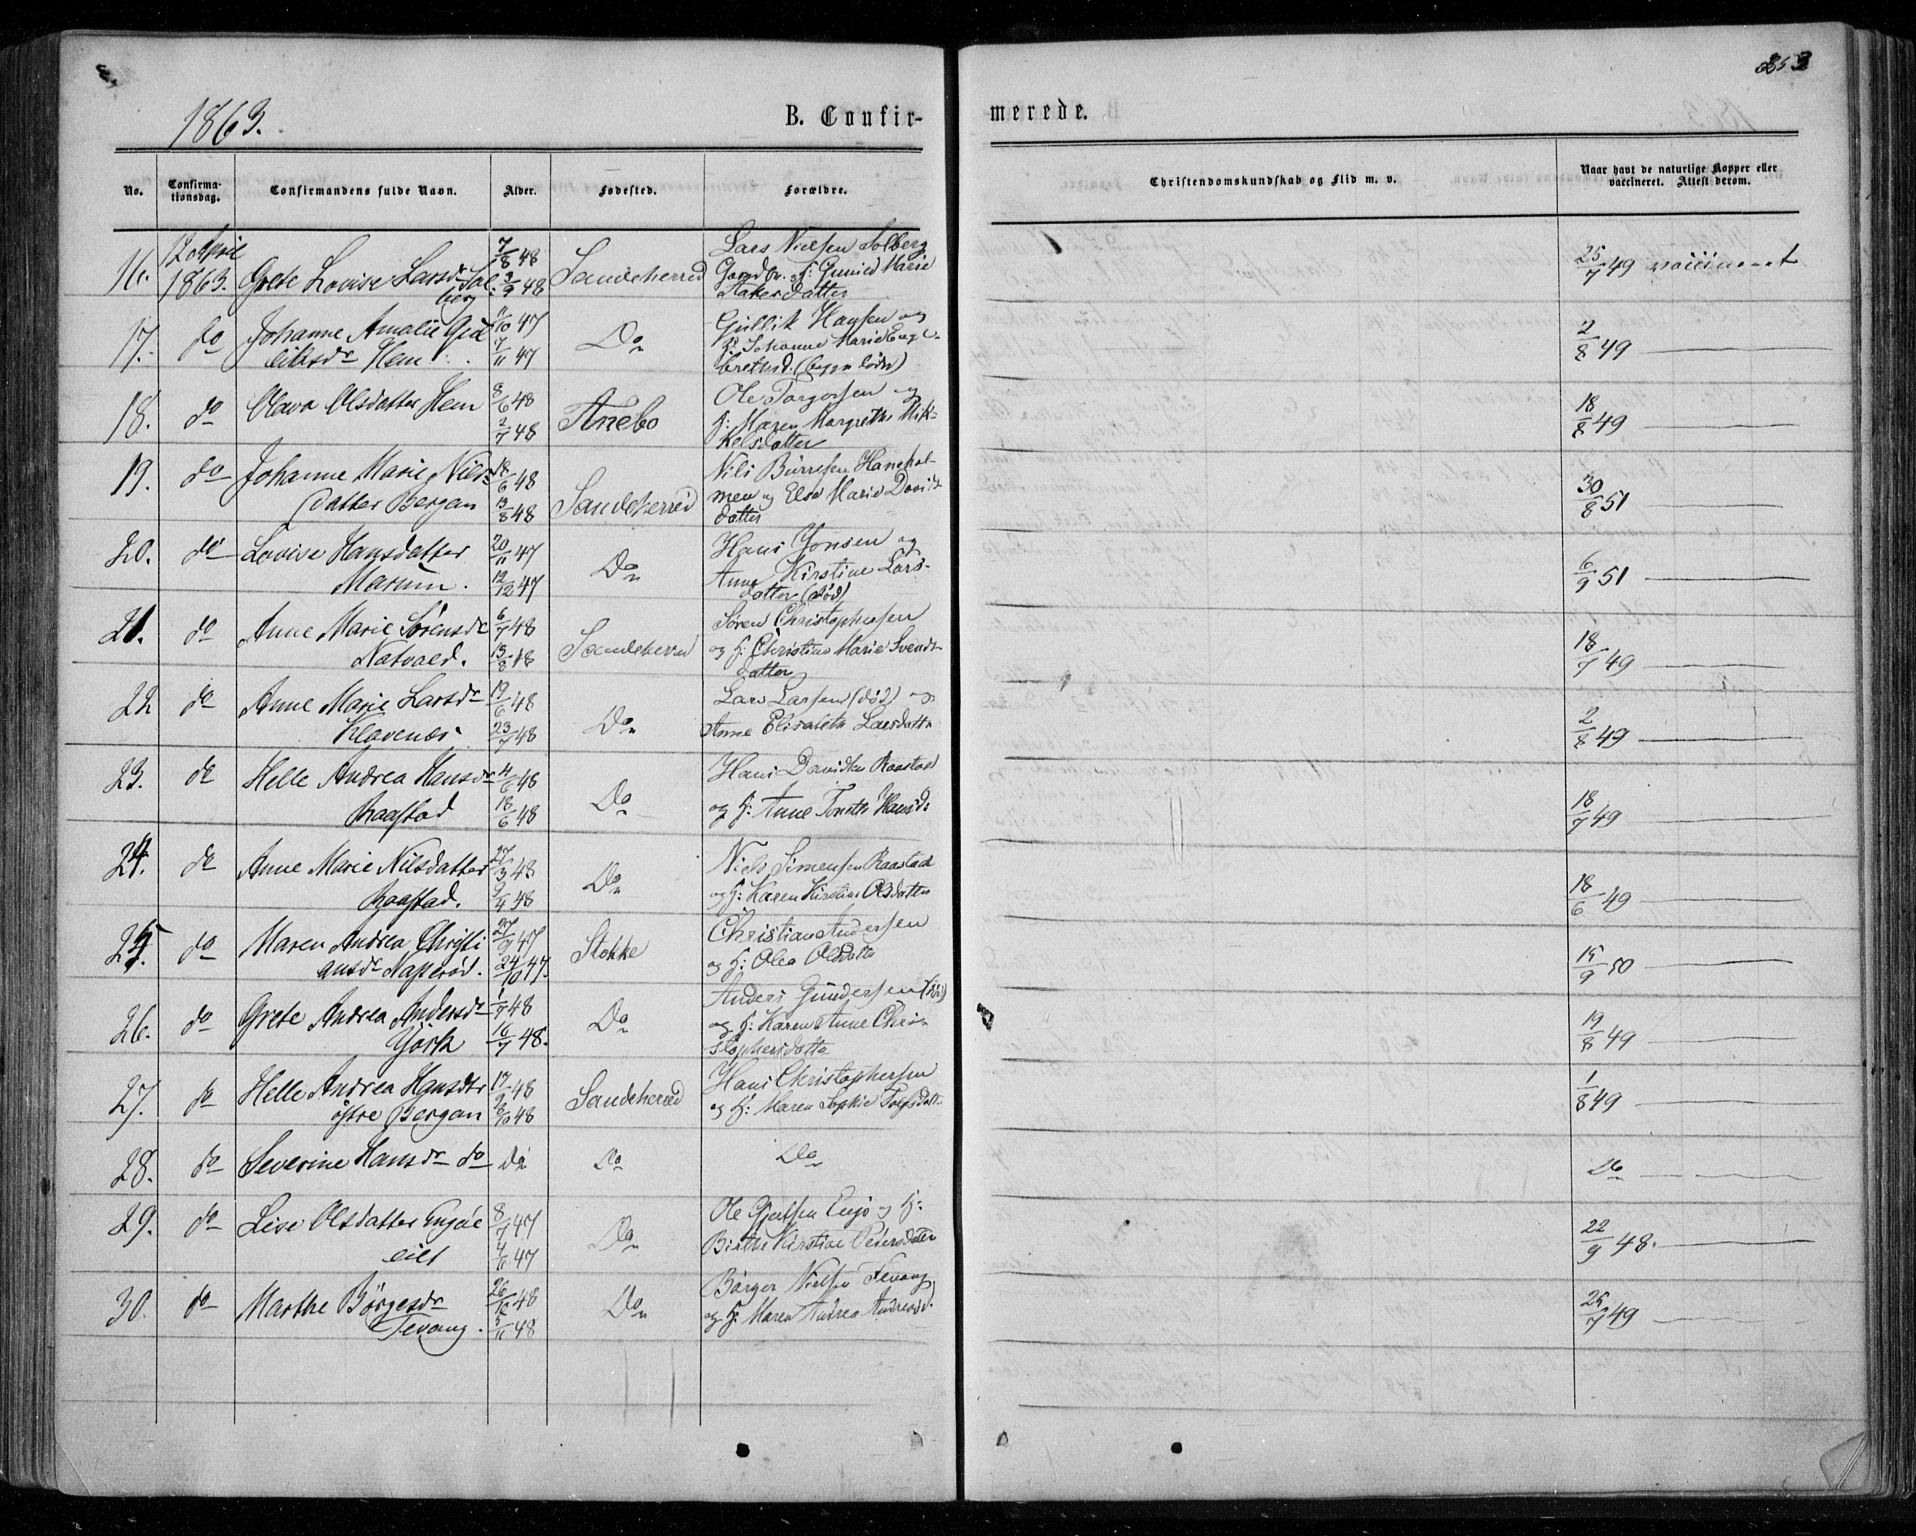 253
1863.
B. Confir-
merede.
No.
Confirma-
tionsdag.
Confirmandens fulde Navn.
Alder.
Fødested.
Forældre.
Christendomskundskab og Flid m. v.
Naar havt de naturlige Kopper eller
vaccineret. Attest derom.
16. 12 April 1863. Grete Lovise Larsdr Sol-
berg
7/8 48
3/9 48
Sandeherred
Lars Nielsen Solberg
Gunild Marie
datter
25/7 49 vaccineret
17. do Johanne Amalie
Hem
47
7/11 47
Do
Gullik Hansen og
Johanne Marie Enge-
brethsd.
2/8 49
18. do Olava Olsdatter Hem
8/6 48
2/7 48
Anebo
Ole Torgersen og
H: Maren Margrethe Mik-
kelsdatter
18/8 49
19. do Johanne Marie Nils-
datter Bergan
18/6 48
13/8 48
Sandeherred
Nils Börresen Hanehol-
men og Else Marie David-
datter
30/8 51
20. do Lovise Hansdatter
Marum.
20/11 47
12/12 47
Do
Hans Jonsen og
Anne Kirstine Lars-
datter (död)
6/9 51
21. do Anne Marie Sörensdr
Natvald.
6/7 48
13/8 48
Sandeherred
Sören Christophersen
og H: Christine Marie Svends-
datter
18/7 49
22 do Anne Marie Larsdr
Klavenæs.
19/6 48
23/7 48
Do
Lars Larsen (död) og
Anne Elisabeth Larsdatte
2/8 49
23. do Helle Andrea Hansdr
Raastad
4/6 48
18/6 48
Do
Hans Davidsen Raastad
og H: Anne Hansd:
18/7 49
24. do Anne Marie Nilsdatter
Raastad.
27/3 48
9/4 48
Do
Niels Simensen Raastad
og H: Karen Kirstine Olsdatte
18/6 49
25. do Maren Andrea Christi
ansdr Napperöd.
27/9 47
24/10 47.
Stokke
Christian Andersen
og H: Olea Olsdatte
15/9 50
26. do Grete Andrea Andersdr
Görk
1/7 48
16/7 48.
Do
Anders Gundersen (död)
og H: Karen Anne Chri-
stophersdatte
19/8 49
27. do Helle Andrea Hansdtr
östre Bergan
17/9 48
48
Sandeherred
Hans Christophersen
og H: Maren Sophie
1/8 49
28. do Severine Hansdr do
Do
Do
Do
Do
29. do Lise Olsdatter
eie
8/7 47
47
Do
Ole og H:
Birthe Kirstine Pedersdatter
22/9 48.
30. do Marthe Börgesdr
Fevang.
26/10 48
5/11 48
Do
Börger Nielsen Fevang
og H: Maren Andrea Andersd.
25/7 49